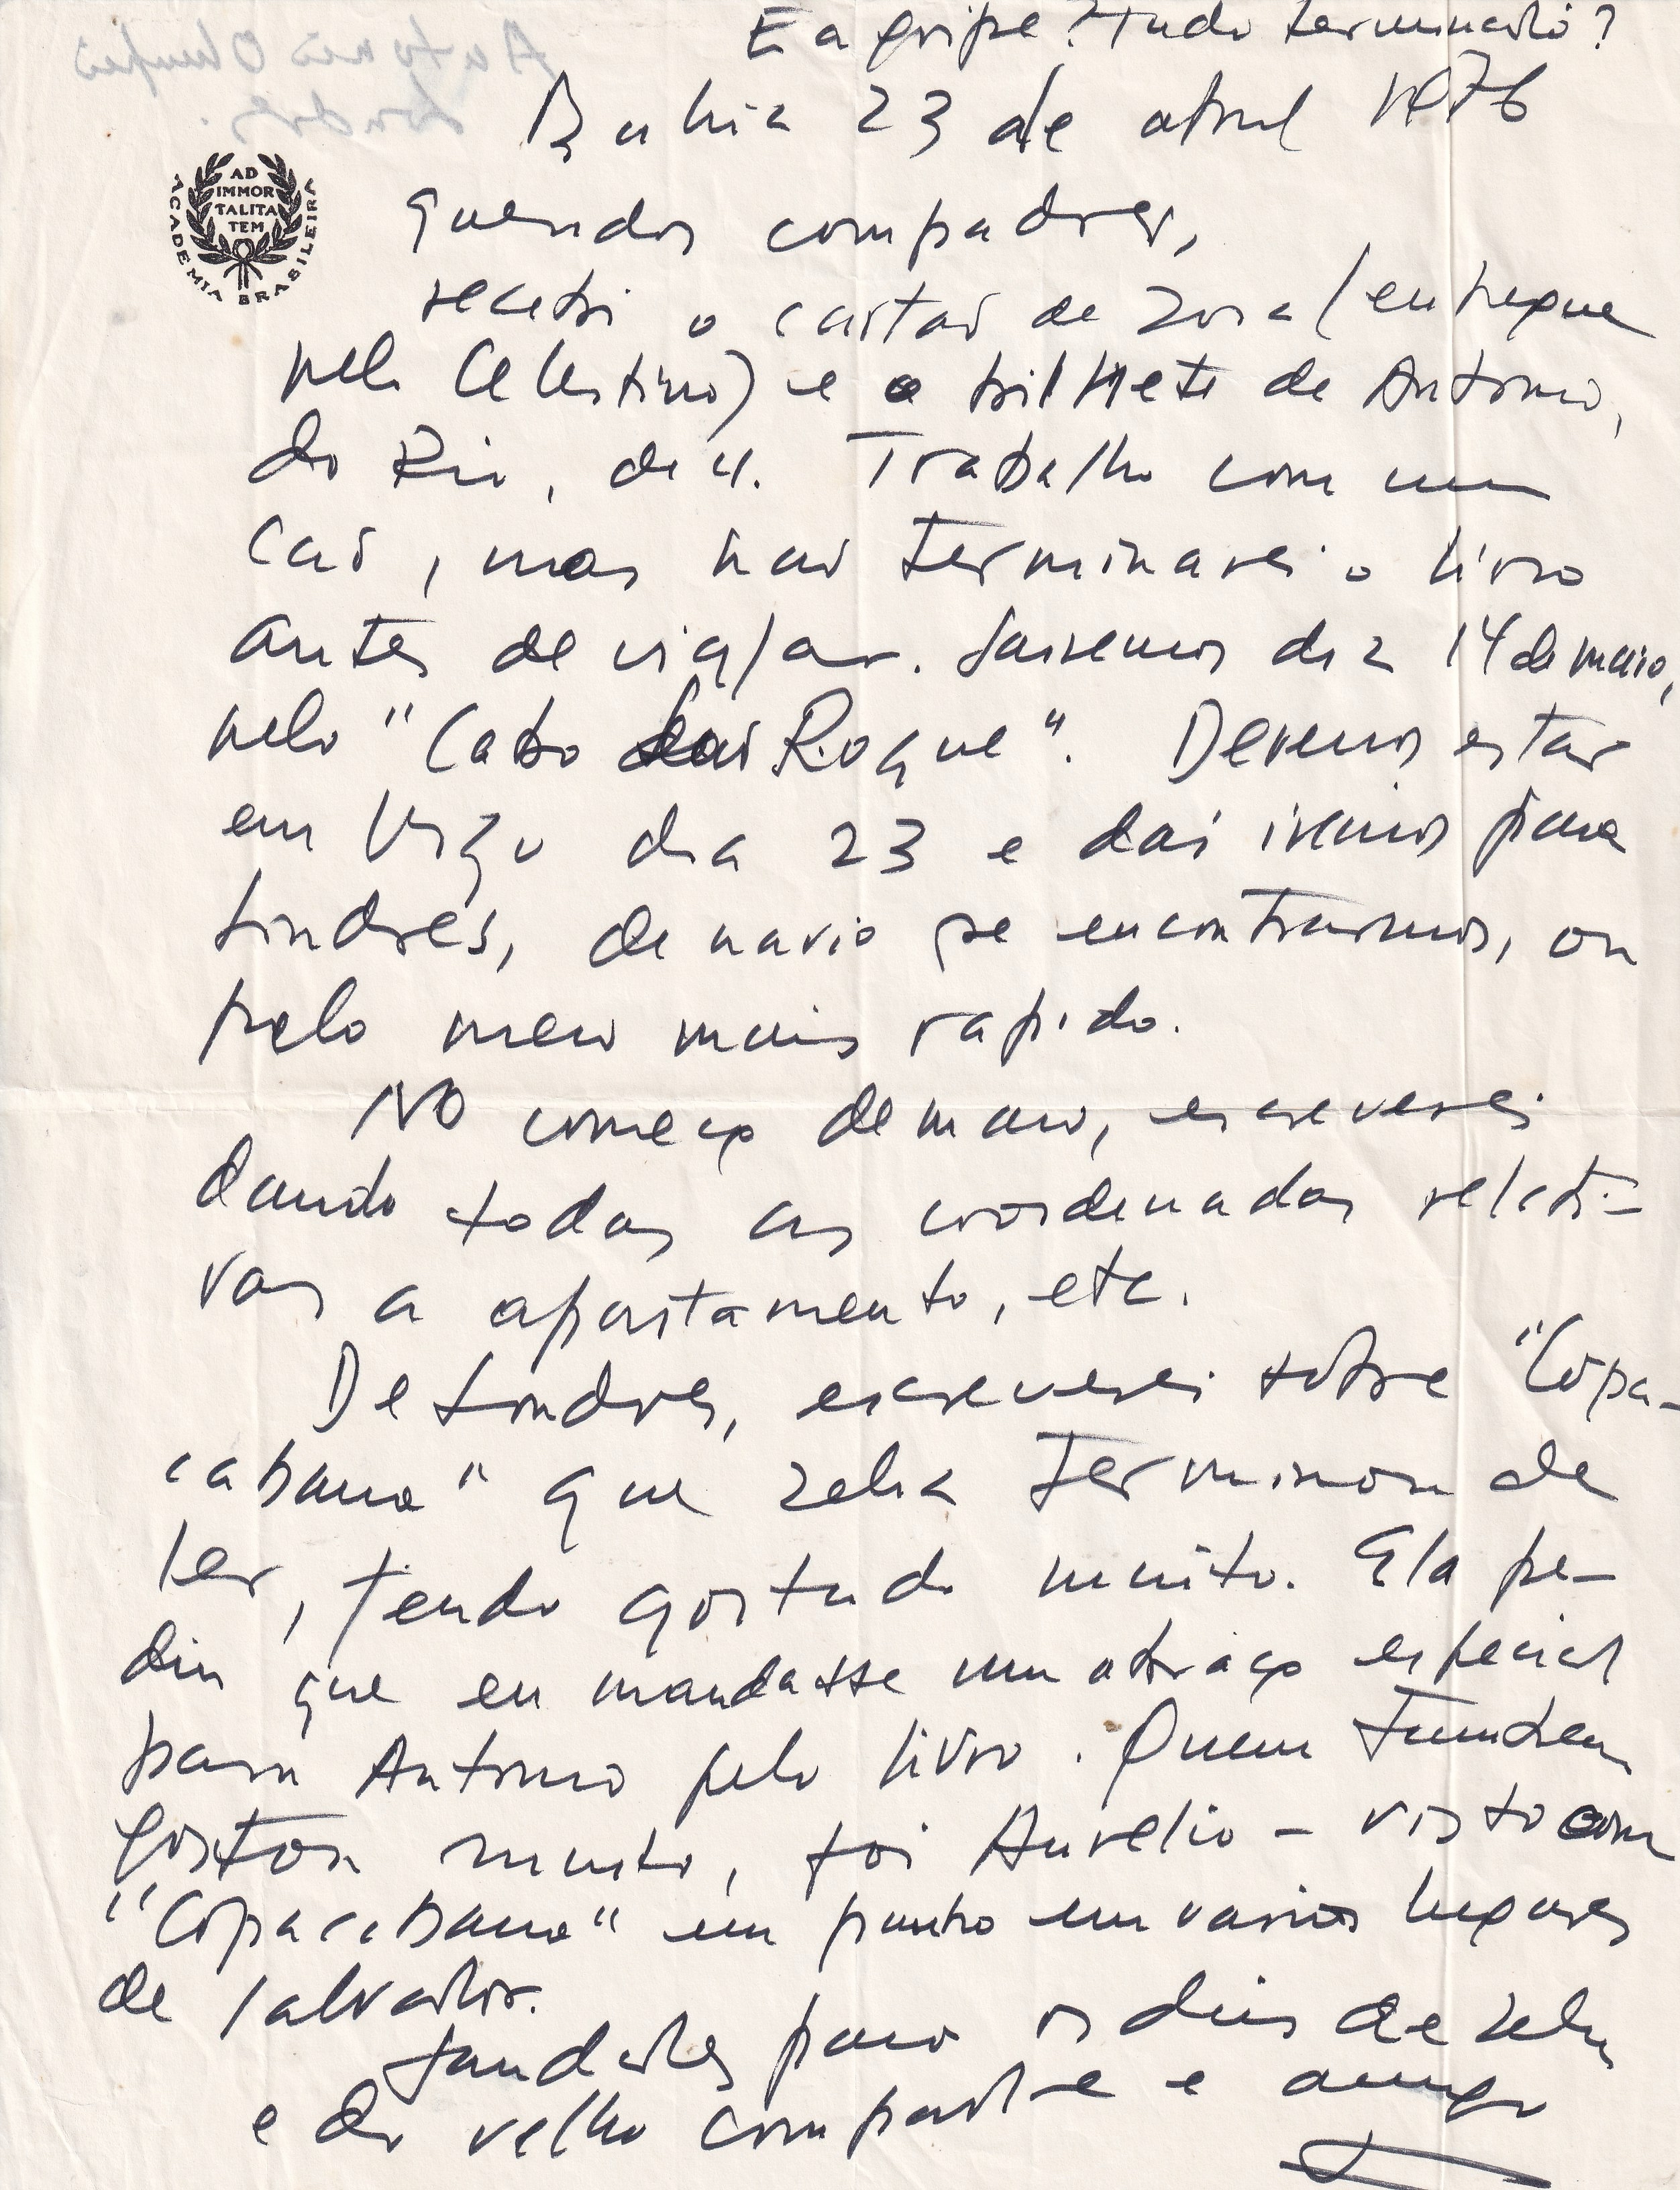 E a gripe? Tudo terminado?
Bahia 23 de abril 1976
AD
IMMOR
TALITA
TEM
ACADEMIA BRASILEIRA
queridos compadres,
recebi o cartão de Zora (entregue
pelo Celestino) e o bilhete de Antonio,
do Rio, de 4. Trabalho como um
cão, mas não terminarei o livro
antes de viajar. Sairemos dia 14 de maio,
pelo "Cabo São Roque". Devemos estar
em Vigo dia 23 e daí iremos para
Londres, de navio se encontrarmos, ou
pelo meio mais rapido.
No começo de maio, escreverei
dando todas as coordenadas relati-
vas a apartamento, etc.
De Londres, escreverei sobre "Copa-
cabana" que Zelia terminou de
ler, tendo gostado muito. Ela pe-
diu que eu mandasse um abraço especial
para Antonio pelo livro. Quem tambem
gostou muito, foi Aurelio - visto com
"Copacabana" em punho em varios lugares
de Salvador.
Saudades para os dois de Zelia
e do velho compadre e amigo